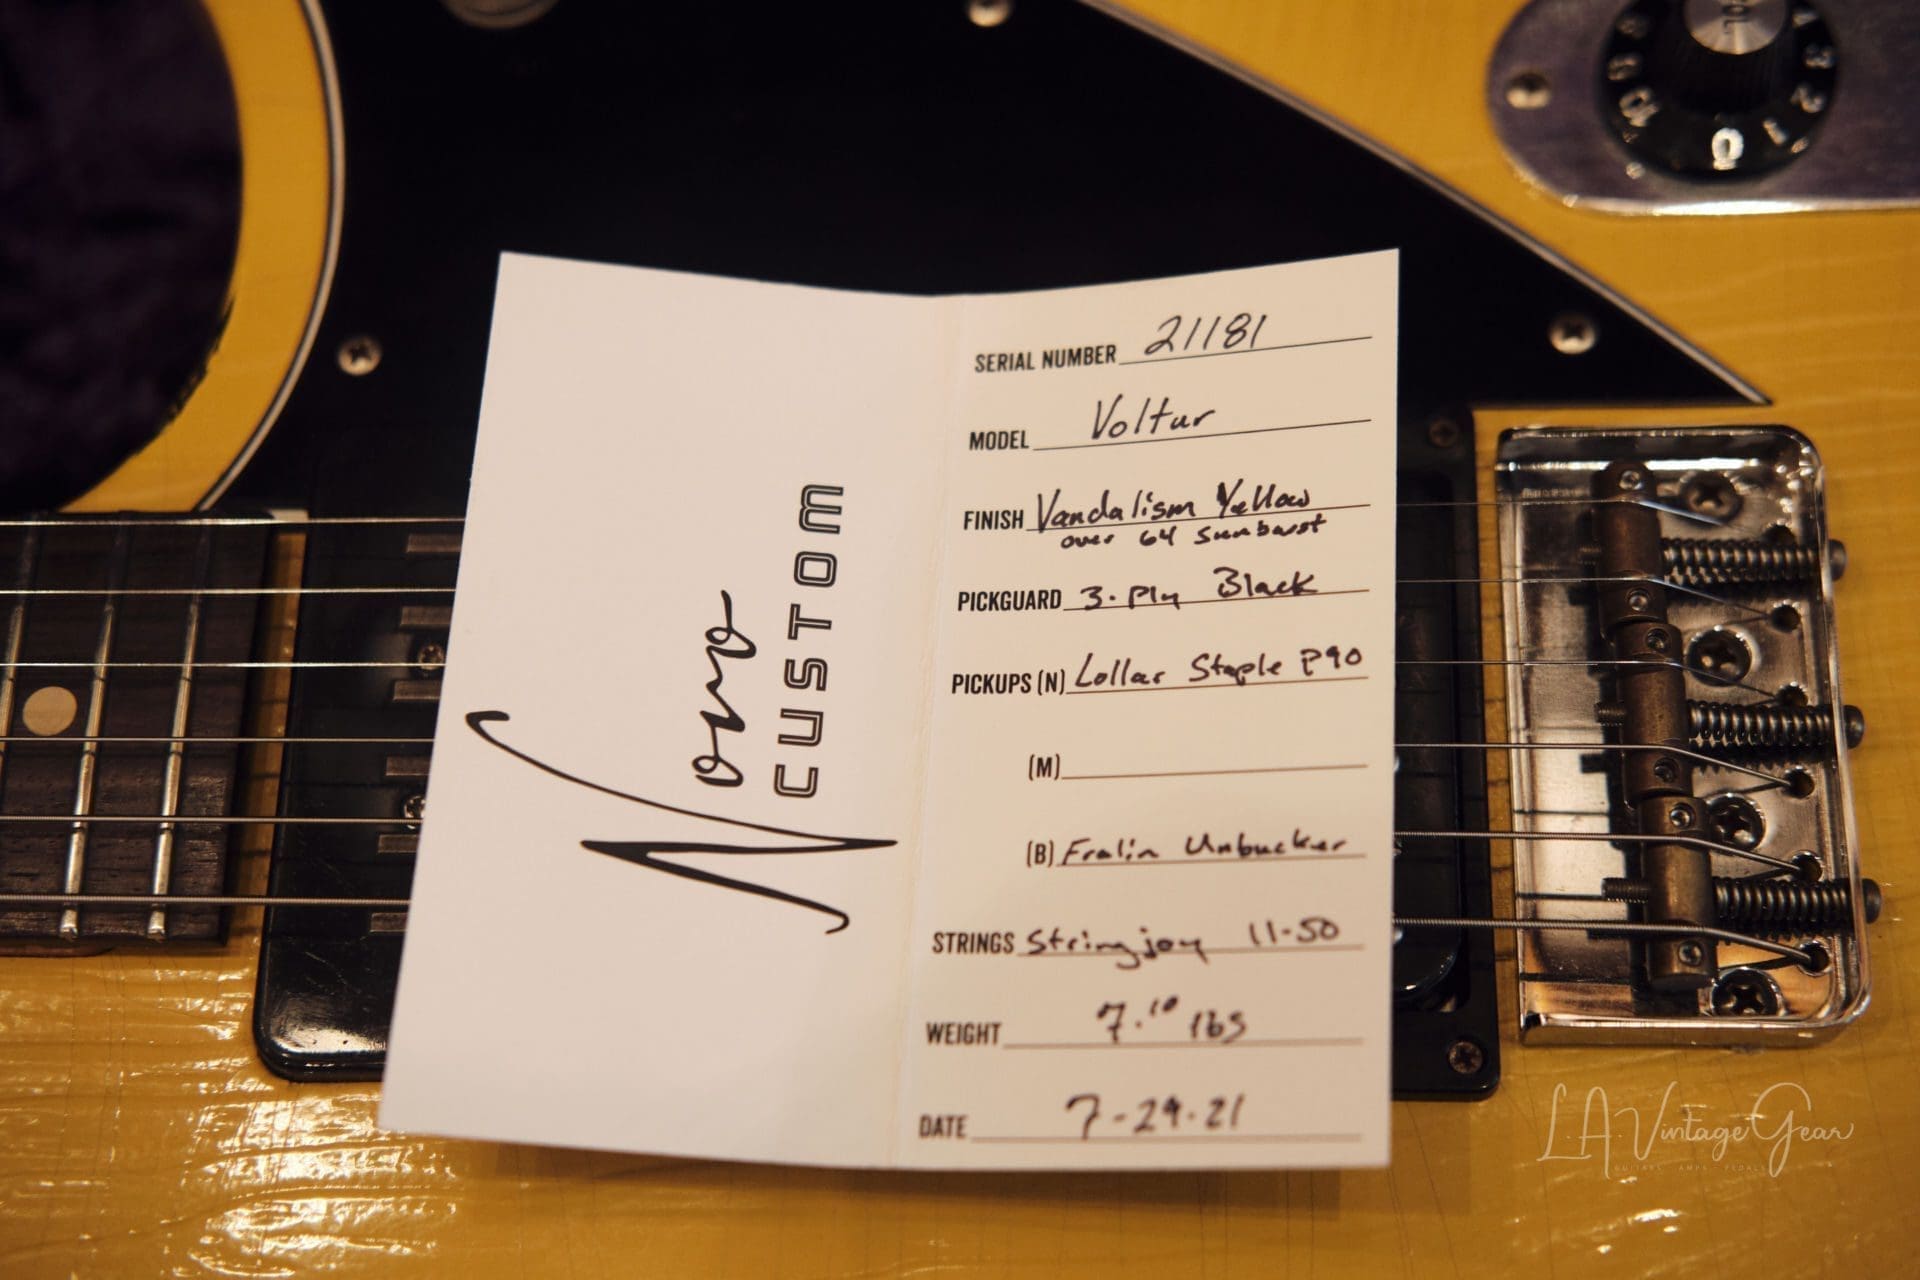 Nono
CUSTOM
SERIAL NUMBER 21181
MODEL Voltur
FINISH Vandalism Yellow
over 64 Sunburst
PICKGUARD 3-Ply Black
PICKUPS (N) Lollar Staple P90
(M)
(B) Fralin Unbucker
STRINGS Stringjoy 11-50
WEIGHT 7.10 lbs
DATE 7-29-21
L.A. Vintage Gear
GUITARS · AMPS · PEDALS
VOL
0
1
2
3
10